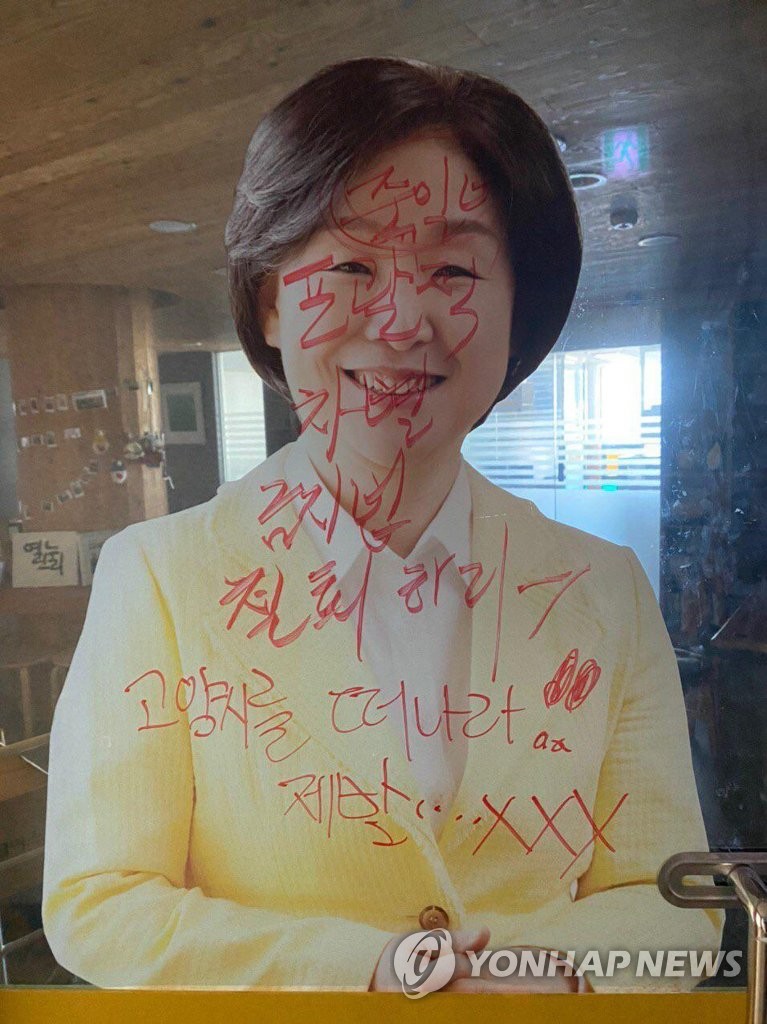 포괄적
차별
금지법
철회하라
고양시를 떠나라
제발....XXX
YONHAP NEWS